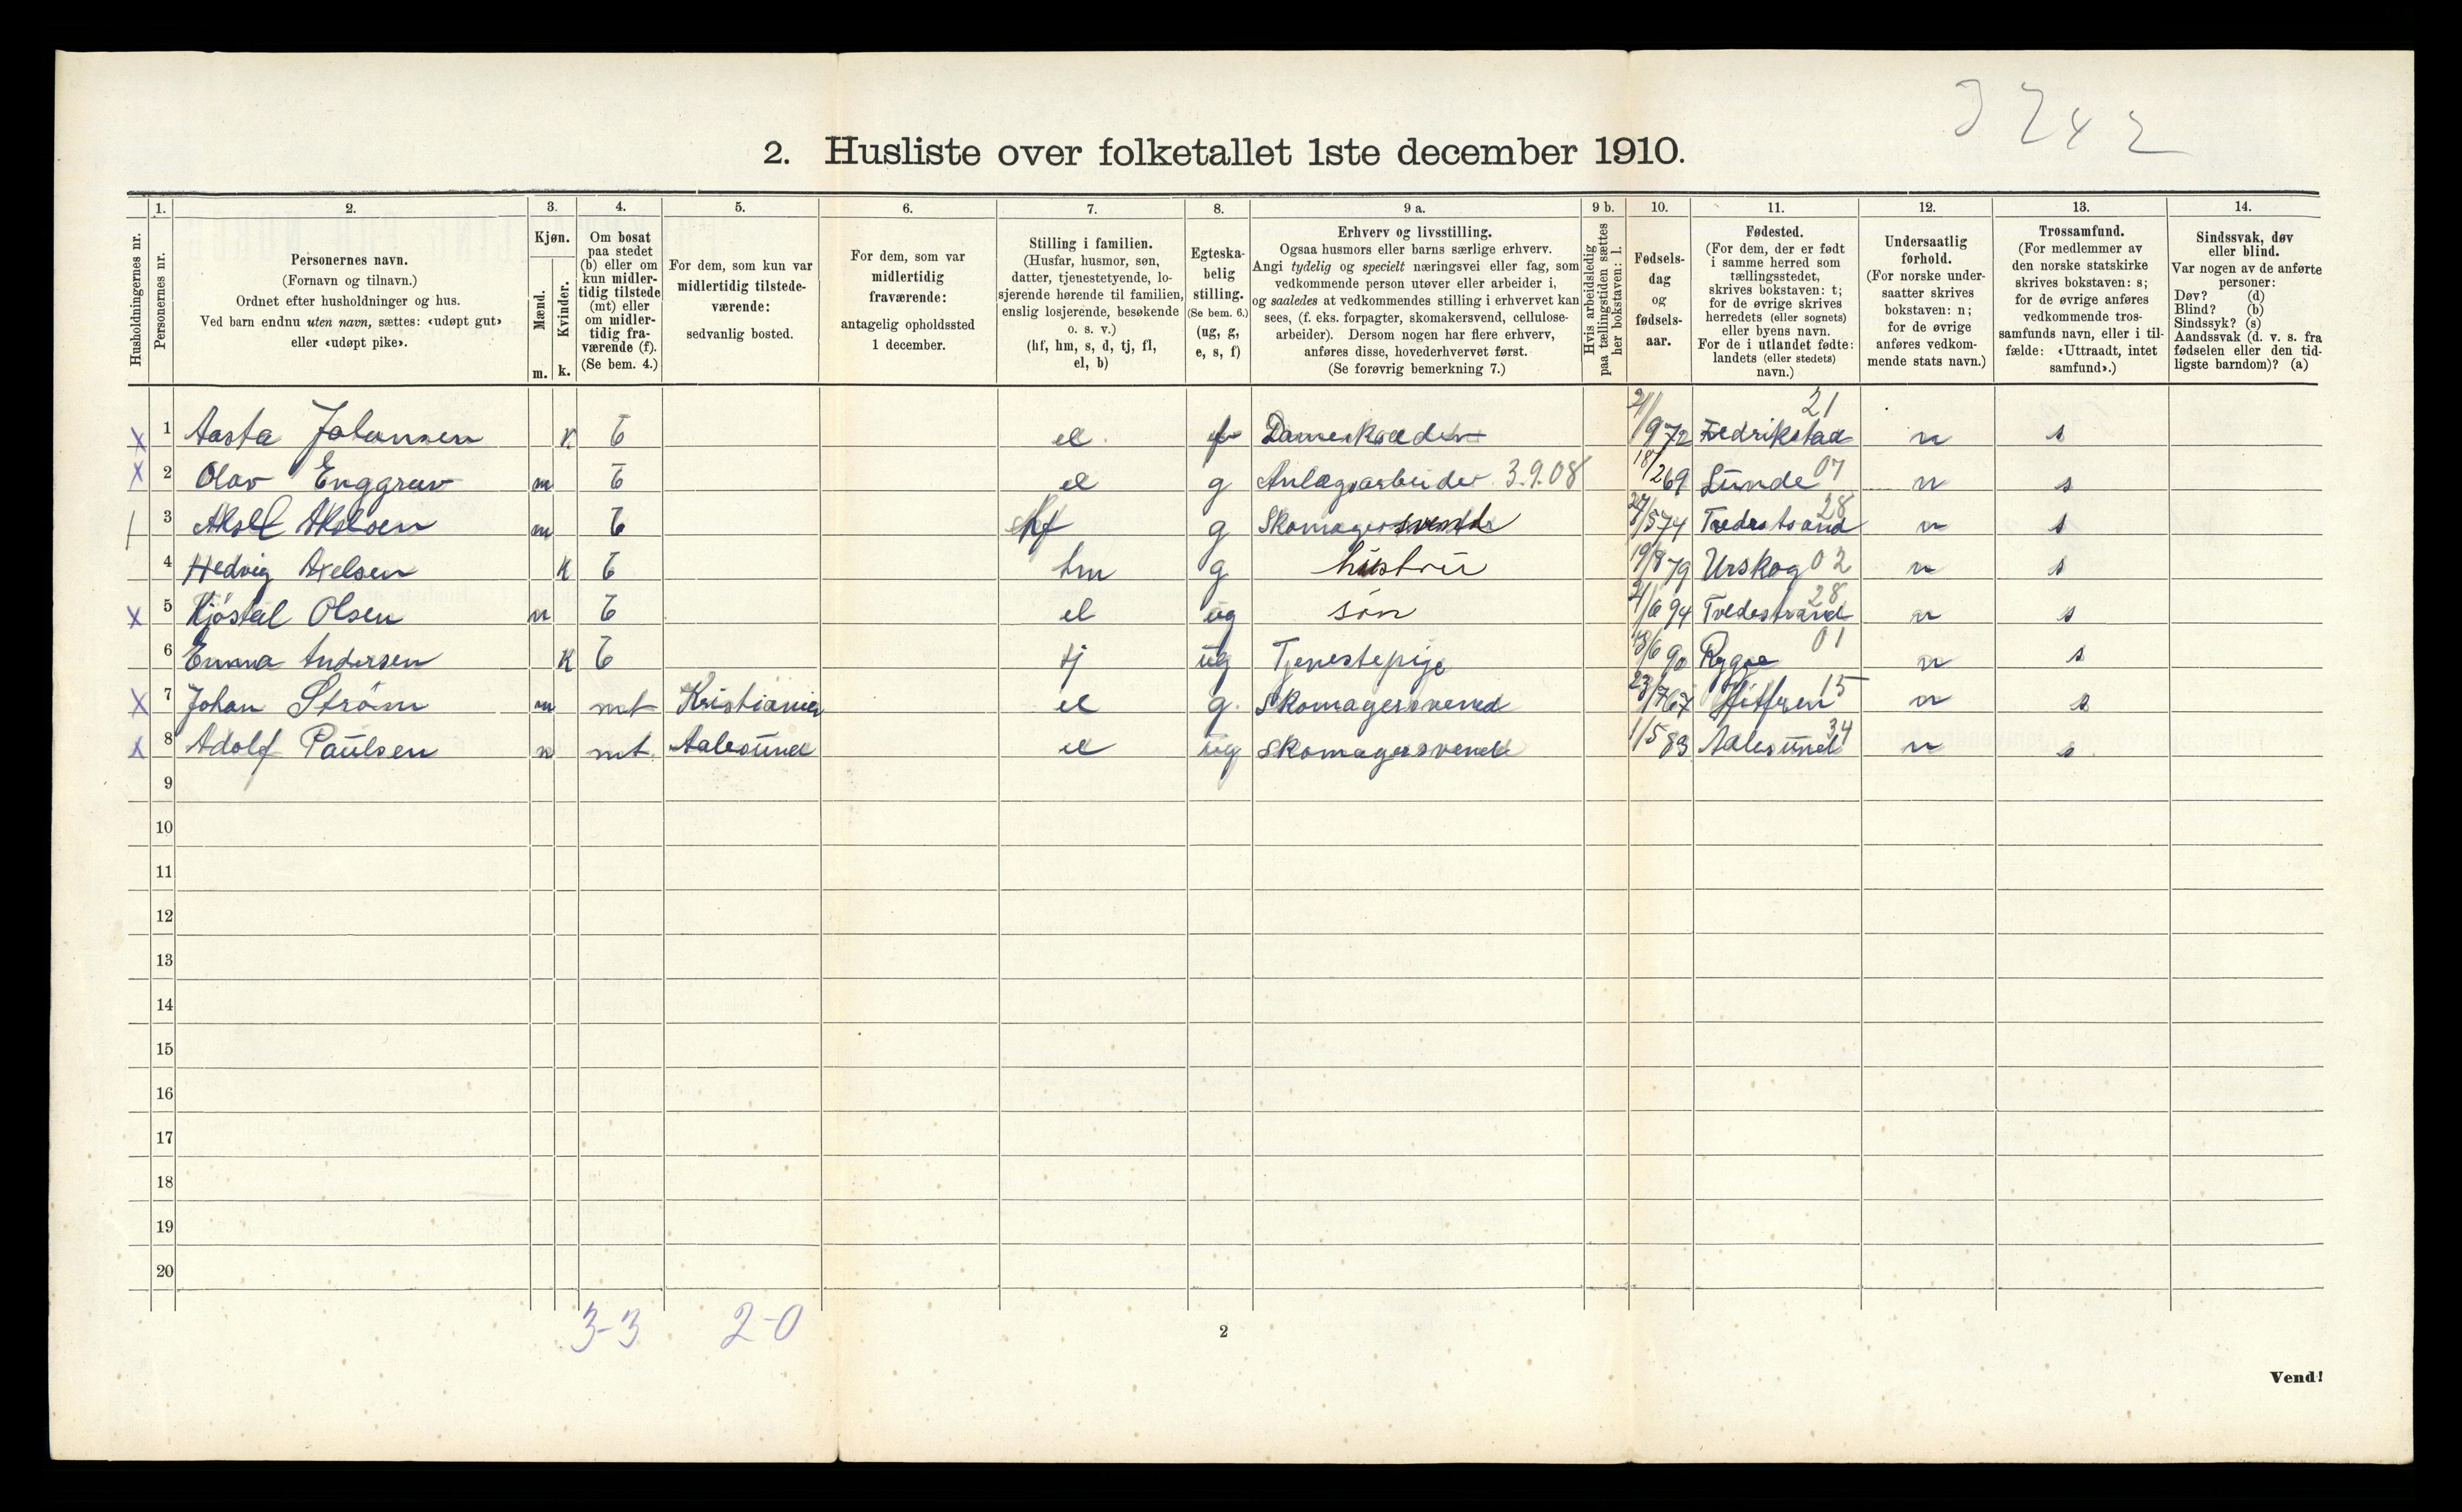 3 242
2. Husliste over folketallet 1ste december 1910.
Husholdningernes nr.
1. Personernes nr.
2. Personernes navn. (Fornavn og tilnavn.) Ordnet efter husholdninger og hus. Ved barn endnu uten navn, sættes: «udøpt gut» eller «udøpt pike».
3. Kjøn. Mænd. m. Kvinder. k.
4. Om bosat paa stedet (b) eller om kun midlertidig tilstede (mt) eller om midlertidig fraværende (f). (Se bem. 4.)
5. For dem, som kun var midlertidig tilstedeværende: sedvanlig bosted.
6. For dem, som var midlertidig fraværende: antagelig opholdssted 1 december.
7. Stilling i familien. (Husfar, husmor, søn, datter, tjenestetyende, losjerende hørende til familien, enslig losjerende, besøkende o. s. v.) (hf, hm, s, d, tj, fl, el, b)
8. Egteskabelig stilling. (Se bem. 6.) (ug, g, e, s, f)
9 a. Erhverv og livsstilling. Ogsaa husmors eller barns særlige erhverv. Angi tydelig og specielt næringsvei eller fag, som vedkommende person utøver eller arbeider i, og saaledes at vedkommendes stilling i erhvervet kan sees, (f. eks. forpagter, skomakersvend, cellulosearbeider). Dersom nogen har flere erhverv, anføres disse, hovederhvervet først. (Se forøvrig bemerkning 7.)
9 b. Hvis arbeidsledig paa tællingstiden sættes her bokstaven: l.
10. Fødselsdag og fødselsaar.
11. Fødested. (For dem, der er født i samme herred som tællingsstedet, skrives bokstaven: t; for de øvrige skrives herredets (eller sognets) eller byens navn. For de i utlandet fødte: landets (eller stedets) navn.)
12. Undersaatlig forhold. (For norske undersaatter skrives bokstaven: n; for de øvrige anføres vedkommende stats navn.)
13. Trossamfund. (For medlemmer av den norske statskirke skrives bokstaven: s; for de øvrige anføres vedkommende trossamfunds navn, eller i tilfælde: «Uttraadt, intet samfund».)
14. Sindssvak, døv eller blind. Var nogen av de anførte personer: Døv? (d) Blind? (b) Sindssyk? (s) Aandssvak (d. v. s. fra fødselen eller den tidligste barndom)? (a)
x 1 Aasta Johansen k b el. f Dameskrædder 21/9 72 Fredrikstad 21 n s
x 2 Olav Enggrav m b el g Anlægsarbeider 3.9.08 18/2 69 Lunde 07 n s
3 Aksel Akselsen m b hf g Skomager 27/5 74 Tvedestrand 28 n s
4 Hedvig Axelsen k b hm g hustru 19/8 79 Urskog 02 n s
x 5 Kjøstal Olsen m b el ug søn 21/6 94 Tvedestrand 28 n s
6 Emma Andersen k b tj ug Tjenestepige 18/6 90 Rygge 01 n s
x 7 Johan Strøm m mt Kristiania el g. Skomagersvend 23/7 67 15 n s
x 8 Adolf Paulsen m mt Aalesund el ug Skomagersvend 1/5 83 Aalesund 34 n s
9
10
11
12
13
14
15
16
17
18
19
20
3-3 2-0
2
Vend!